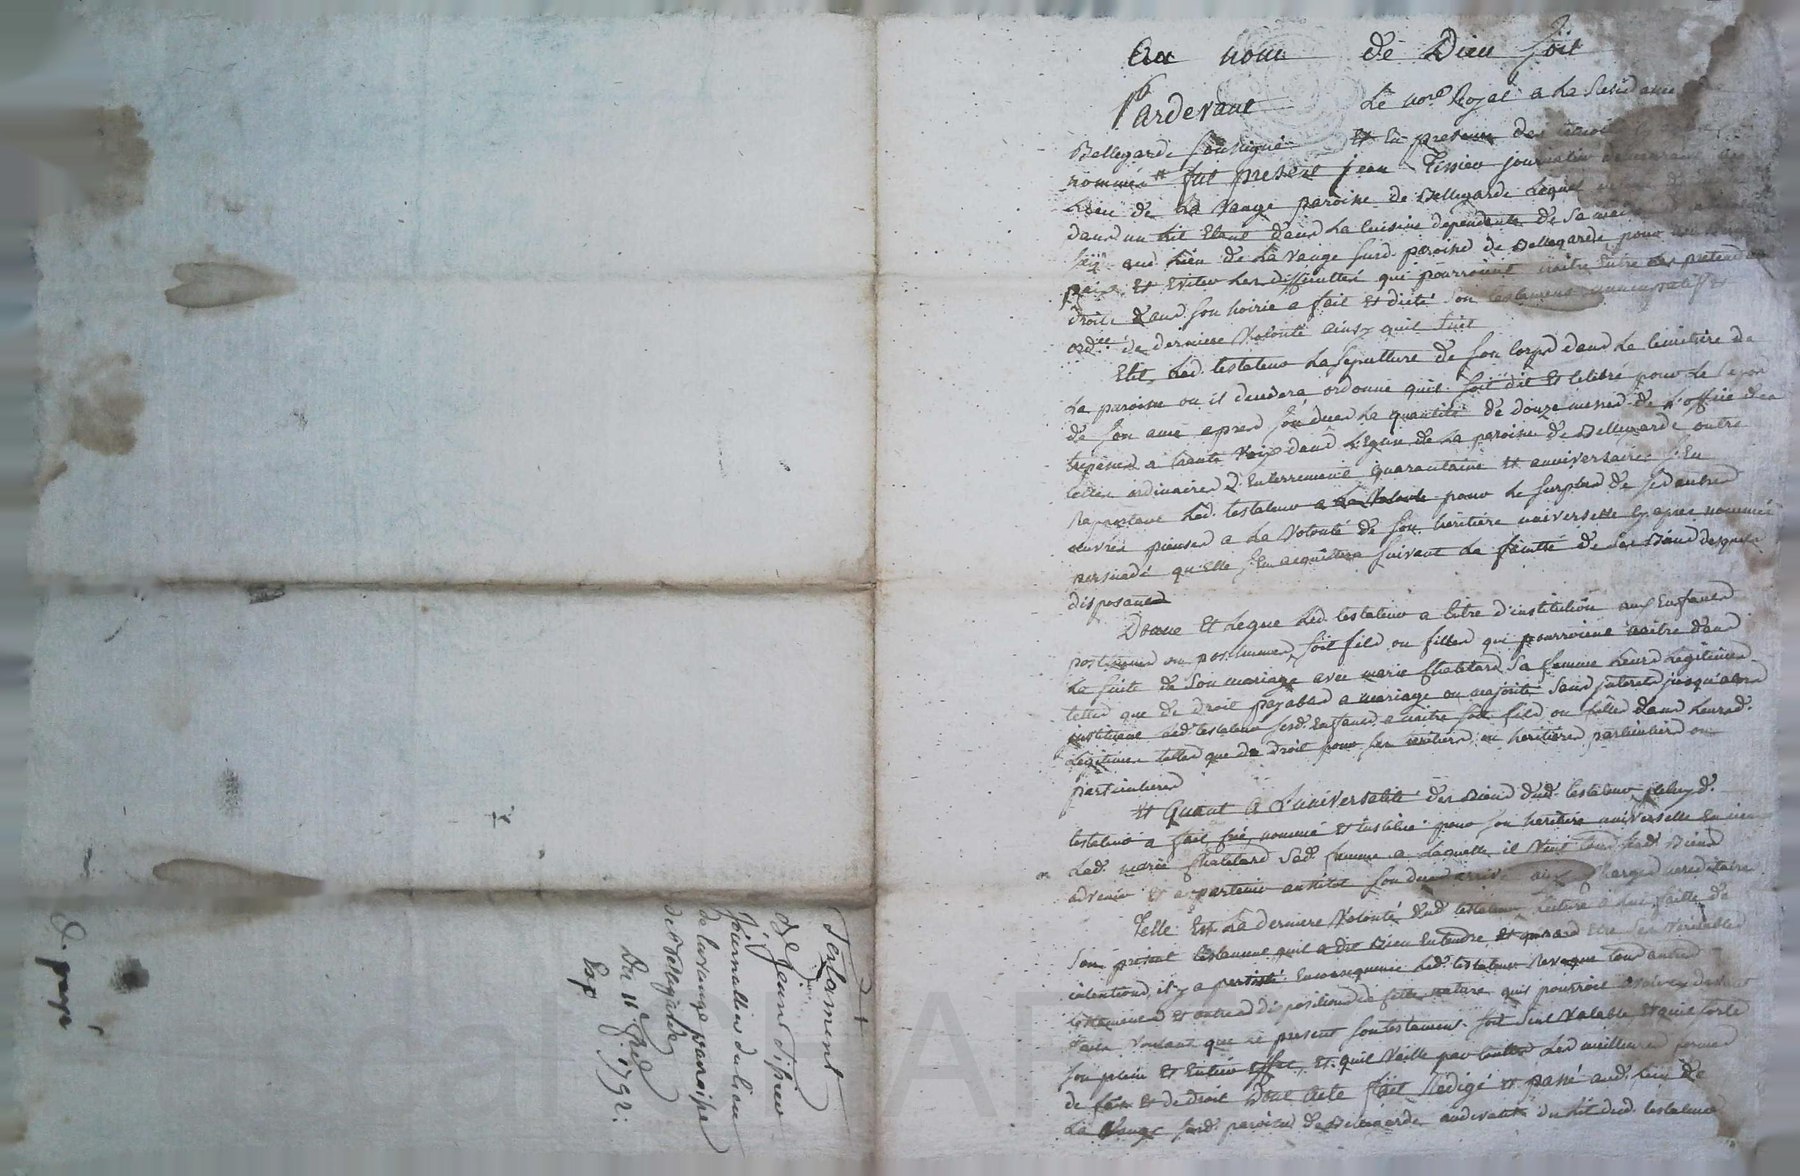 Testament
de jean tissieu
journallier du lieu
de la vauge paroisse
de Bellegarde
Du 11e 1792.
Exp
payé
Au nom de Dieu soit
Pardevant Le nore Royal a La Residance
Bellegarde soussigné Et En presence des temoins
nommés fut present jean Tissieu journalier demeurant
Lieu de La Vauge paroisse de Bellegarde Lequel
dans un Lit Etant dans La Cuisine dependante de Sa
aud. Lieu de La Vauge susd. paroisse de Bellegarde, pour
paix Et Eviter Les difficultés qui pourroient naitre Entre Les pretendans
droits dans son hoirie a fait Et dicté Son testament nuncupatif et
ordce de derniere Volonté ainsy quil suit
Elit Led. testateur La Sepulture de son Corps dans Le Cimetiere de
La paroisse ou il decedera ordonne quil soit dit Et Celebré pour Le Repos
de son ame apres son deces La quantité de douze messes de L'office des
trepassés a haute Voix dans L'Eglise de La paroisse de Bellegarde outre
Celles ordinaires d'Enterrement quarantaine Et anniversaire s'En
Raportant Led. testateur a La Volonté pour Le surplus de ses autres
œuvres pieuses a La Volonté de son heritiere universelle cy apres nommée
persuadé qu'Elle s'En acquittera suivant La faculté de ses Biens desquels
disposant
Donne Et Legue Led. testateur a titre d'institution aux Enfants
posthume ou posthumes, soit fils ou filles qui pourroient naitre dans
La suite de Son mariage avec marie Chatelard Sa femme Leurs Legitimes
telles que de droit payables a mariage ou majorité Sans interets jusqu'alors
instituant Led. testateur sesd. Enfants a naitre soit fils ou filles dans Leursd.
Legitimes telles que de droit pour ses heritiers ou heritieres particuliers ou
particulieres
Et Quant a L'universalité des Biens dud. testateur jceluy d.
testateur a fait créé, nommé Et institué pour son heritiere universelle
Lad. marie Chatelard Sad. femme a Laquelle il Veut tous sesd. Biens
advenir Et appartenir aussitot son deces arrivé aux Charges hereditaires
Telle Est La derniere Volonté dud. testateur Lecture a Luy faitte de
Son present testament quil a dit Bien Entendre Et Etre Ses Veritables
intentions, il y a persisté Enconsequence Led. testateur Revoque tous autres
testaments Et autres dispositions de telle nature quil pourroit avoir
faits Voulant que ce present son testament soit seul Valable Et quil sorte
son plein Et Entier Effet Et quil Vaille par toutes Les meilleures formes
de fait Et de droit Dont acte fait Redigé Et passé aud. Lieu de
La Vauge susd. paroisse de Bellegarde audevant du Lit dud. testateur